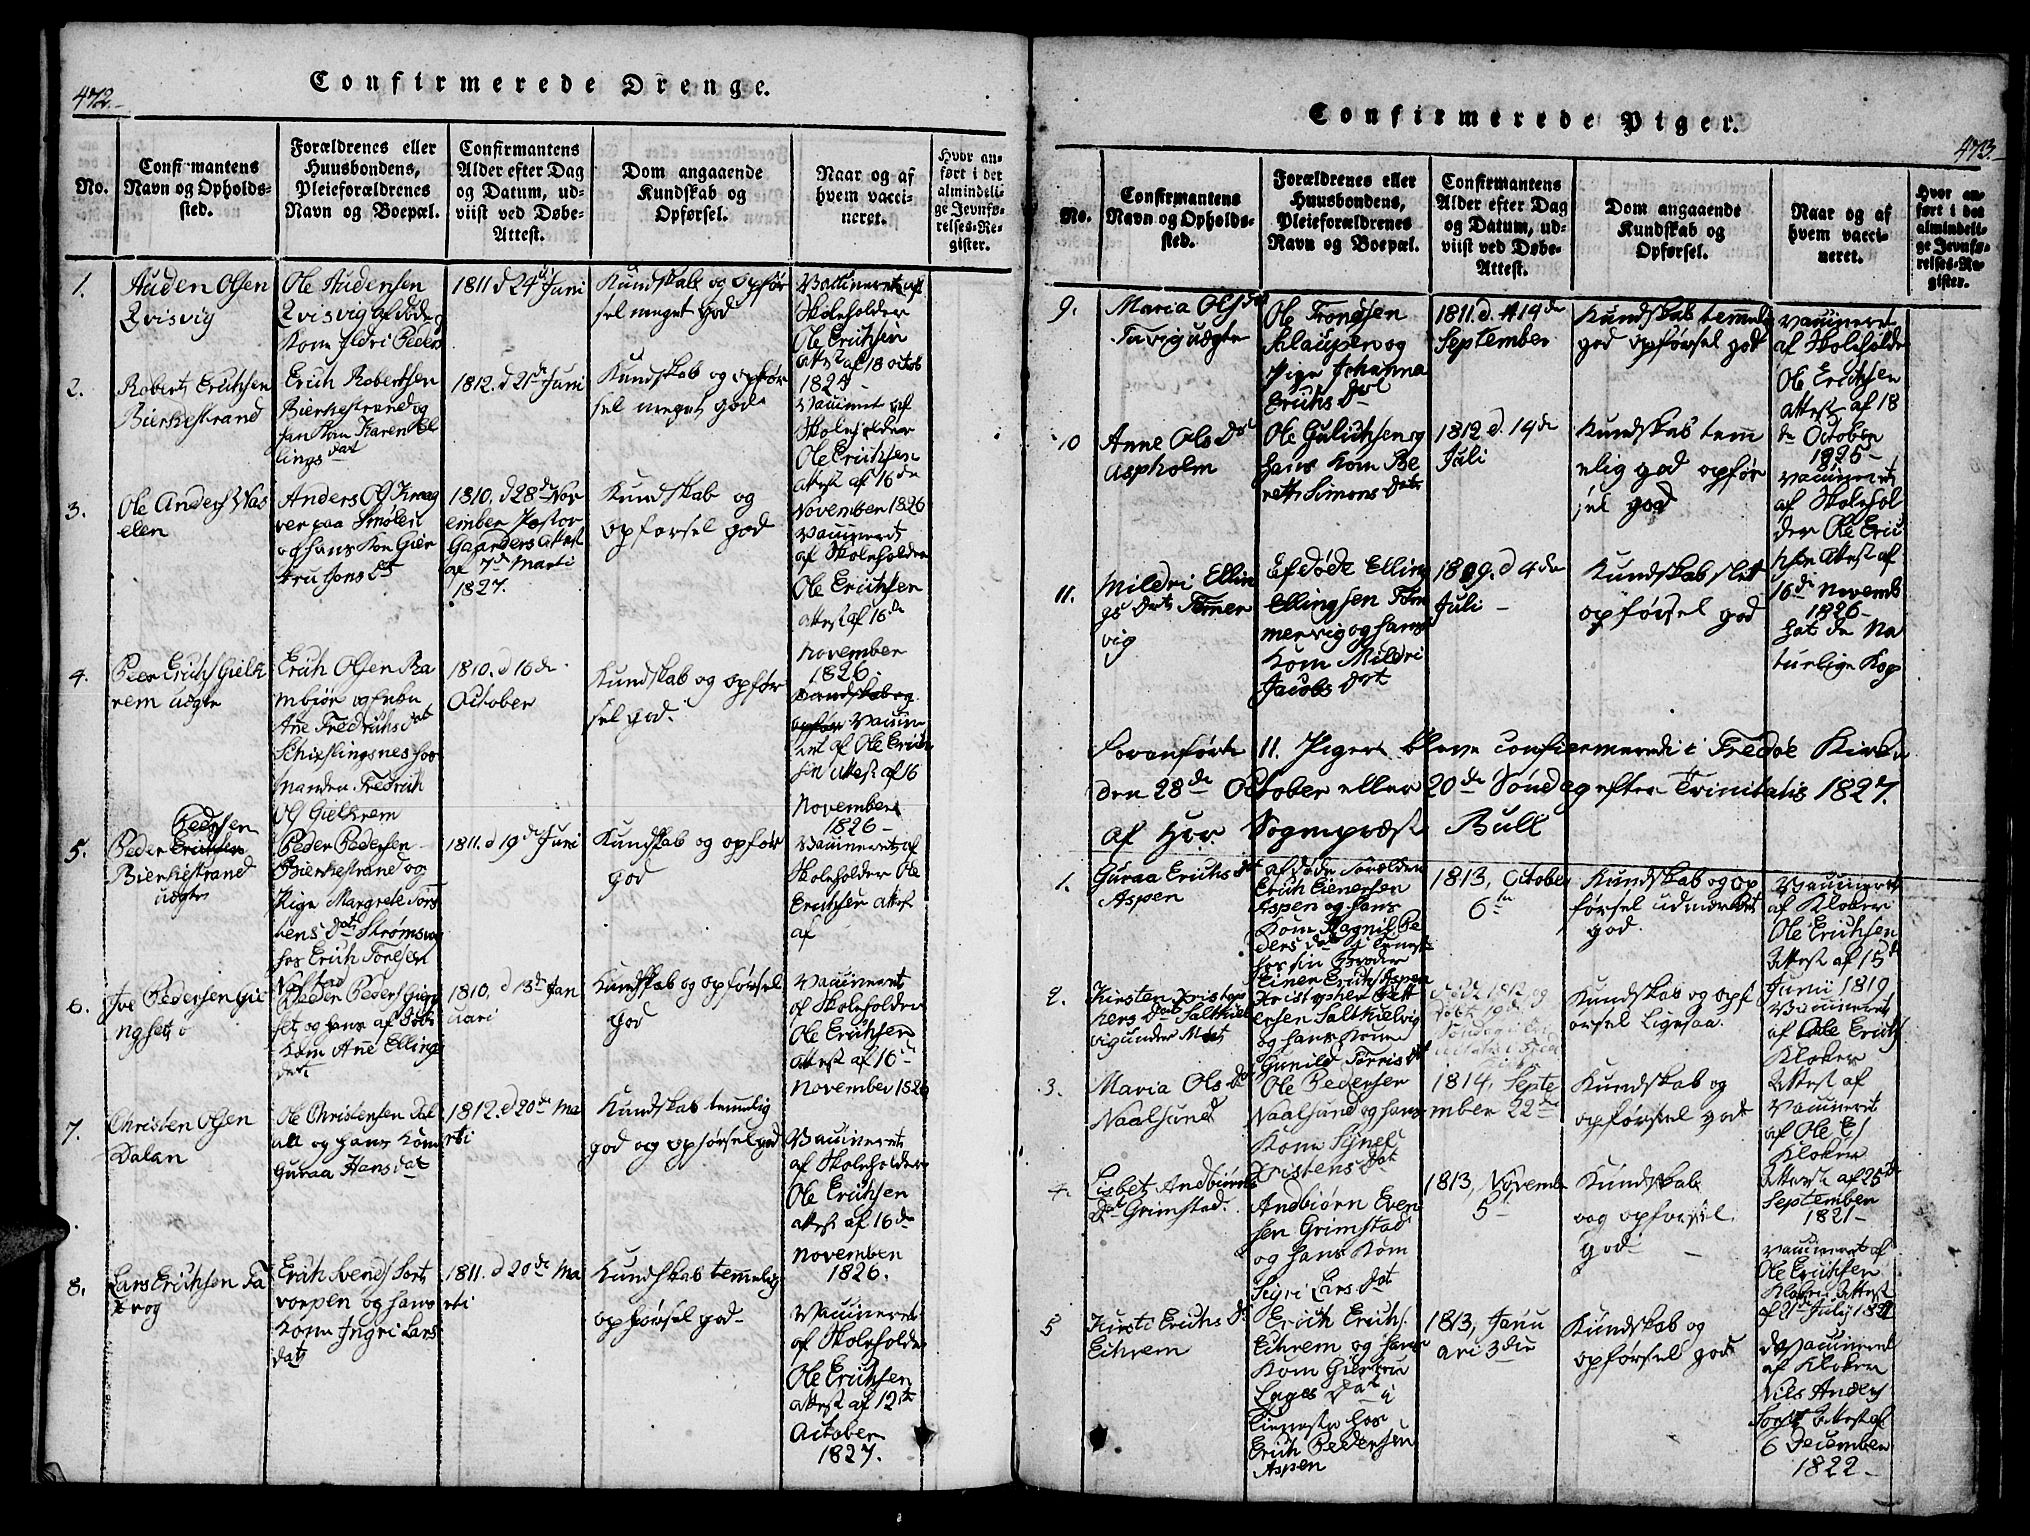 472.
Confirmerede Drenge.
No.
Confirmantens
Navn og Opholds-
sted.
Forældrenes eller
Huusbondens,
Pleieforældrenes
Navn og Boepæl.
Confirmantens
Alder efter Dag
og Datum, ud-
viist ved Døbe-
Attest.
Dom angaaende
Kundskab og
Opførsel.
Naar og af
hvem vacci-
neret.
Hvor an-
ført i det
almindeli-
ge Jevnfø-
relses-Re-
gister.
1.
Auden Olsen
Qvisvig
Ole Audensen
Qvisvig afdøde
Kone Ildri Peders
1811 d 24de Juni
Kundskab og opfør
sel meget god
Vaccineret af
Skoleholder
Ole Erichsen
attest af 18 octob
1827
2.
Robert Erichsen
Bierkestrand
Erich Robertsen
Bierkestrand og
han Kone Karen El
lings dat
1812. d 21de Juni
Kundskab og opfør
sel meget god
Vaccineret af
Skoleholder
Ole Erichsen
attest af 16de
November 1826
3.
Ole Anders Nas
elen
Anders Ols
ver paa Smølen
og hans Kone Gier
tru Jons dt
1810. d 28de Nov
ember Pastor
Gaarders attest
af 7de Marti
1827.
Kundskab og
opførsel god
Vaccineret
af Skoleholder
Ole Erichsen
attest af 16de
November
1826
4.
Peer Erichs Gielk
rem udgte
Erich Olsen Ra
mbiør og Enken
Ane Fredrichs dat
Schieslingsnes hos
Manden Fredrich
Ols Gielkrem
1810. d 16de
October
Kundskab og opfør
sel god.
Kundskab og
opfør Vaccine
ret af Ole Erich
sen attest af 16
November
1826 -
5.
Pedersen
Peder Erichsen
Bierkestrand
udgte
Peder Pedersen
Bierkestrand og
Pige Margrete Tors
tens dat Strømsvag
hos Erich Toresen
1811. d 19de Juni
Kundskab og opfør
god
Vaccineret af
Skoleholder Ole
Erichsen attest
af
6.
Ive Pedersen Gie
ngset
Peder Peders Gieng
set og hans af Døde
Kone Ane Ellings
dat
1810, d 13de Jan
uari
Kundskab og opførsel
god
Vaccineret
af Skoleholder
Ole Erichsen
attest af 16de
November 1826
7.
Christen Olsen
Dalan
Ole Christensen Dal
all og hans Kone
Guraa Hans dat
1812. d 20de Ma
rti
Kundskab temmelig
god og opførsel god
Vaccineret
af Skoleholder
Ole Erichsen
attest af 16de
November
1826.
8.
Lars Erichsen Ta
rvog
Erich Svends Sort
vorpen og hans
Kone Ingri Lars
dat
1811. d 20de Ma
rti
Kundskab temmelig
opførsel god -
Vaccineret
af Skoleholder
Ole Erichsen
attest af 12te
October
1827.
Confirmerede Piger.
473.
No.
Confirmantens
Navn og Opholds-
sted.
Forældrenes eller
Huusbondens,
Pleieforældrenes
Navn og Boepæl.
Confirmantens
Alder efter Dag
og Datum, ud-
viist ved Døbe-
Attest.
Dom angaaende
Kundskab og
Opførsel.
Naar og af
hvem vacci-
neret.
Hvor an-
ført i det
almindeli-
ge Jevnfø-
relses-Re-
gister.
9.
Maria Ols dt
Tavig udgte
Ole Tronsen
Klaupen og
Pige Johanna
Erichs dat
1811. d. 19de
September
Kundskab temmelig
god opførsel god
Vaccineret
af Skoleholder
Ole Erichsen
attest af 18
de October
1826 -
10
Anne Ols dt
Aspholm
Ole Gulichsen og
hans Kone Be
rette Simons dat
1812 d. 14de
Juli
Kundskab tem
elig god opfør
sel god
Vaccineret
af Skolehol
der Ole Eric
hsen attest af
16de Novemb
1826 -
11.
Mildri Ellin
gs dat Tømer
vig
Afdøde Elling
Ellingsen Tøm
mervig og hans
Kone Mildri
Jacobs dat
1809. d 4de
Juli -
Kundskab slet
opførsel god
hat de Na
turlige Kop
foranførte 11. Piger bleve confiermerede i Fredøe Kirke
den 28de October eller 20de Søndag efter Trinitatis 1827.
af Hør. Sognepræst Bull
1.
Guraa Erichs dt
Aspen
afdøde Forældre
Erich Einersen
Aspen og hans
Kone Magnil Pe
ders dat i Tienest
hos sin Broder
Einer Erichs Aspen
1813, October
6te
Kundskab og op
førsel udmærket
god.
Vaccineret
af Klokker
Ole Erichsen
attest af 15de
Junii 1819
2.
Kirsten Kristop
hers dat Saltkiel
vig under Moet
Kristopher Pett
ersen Saltkielvig
og hans Kone
Gunild Torris dt
Kundskab og opf
ørsel Ligesaa.
Vaccineret
af Ole Erichs
Kloker
3.
Maria Ols dt
Naalsund
Ole Pedersen
Naalsund og hans
Kone Synef
Kristens dat
1814, Septe
mber 22de
Kundskab og
opførsel god
Attest af
Vaccineret
af Ole Es
Kloker
Attest af 25de
September
1821 -
4.
Lisbet Andbiørns
dt Grimstad.
Andbiørn Even
sen Grimstad
og hans Kone
Sigri Lars dat
1813, Novemb
5te
Kundskab
og opførsel
god -
Vaccineret af
Ole Erichsen
5
Kirsti Erichs dt
Eikrem
Erich Erichs.
Eikrem og hans
Kone Giertru
Lages dat i
Tieneste hos
Erich Pedersen
Aspen
1813, Janu
ari 3die
Kundskab og
opførsel god
Vaccineret
af Kloker
Nils Anders
Attest af
6 December
1822 -